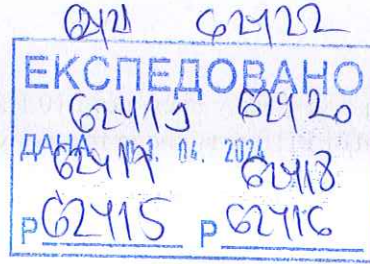 62422
ЕКСПЕДОВАНО
62419 62420
ДАНА 04. 2024
62417 62418
Р 62415 Р 62416